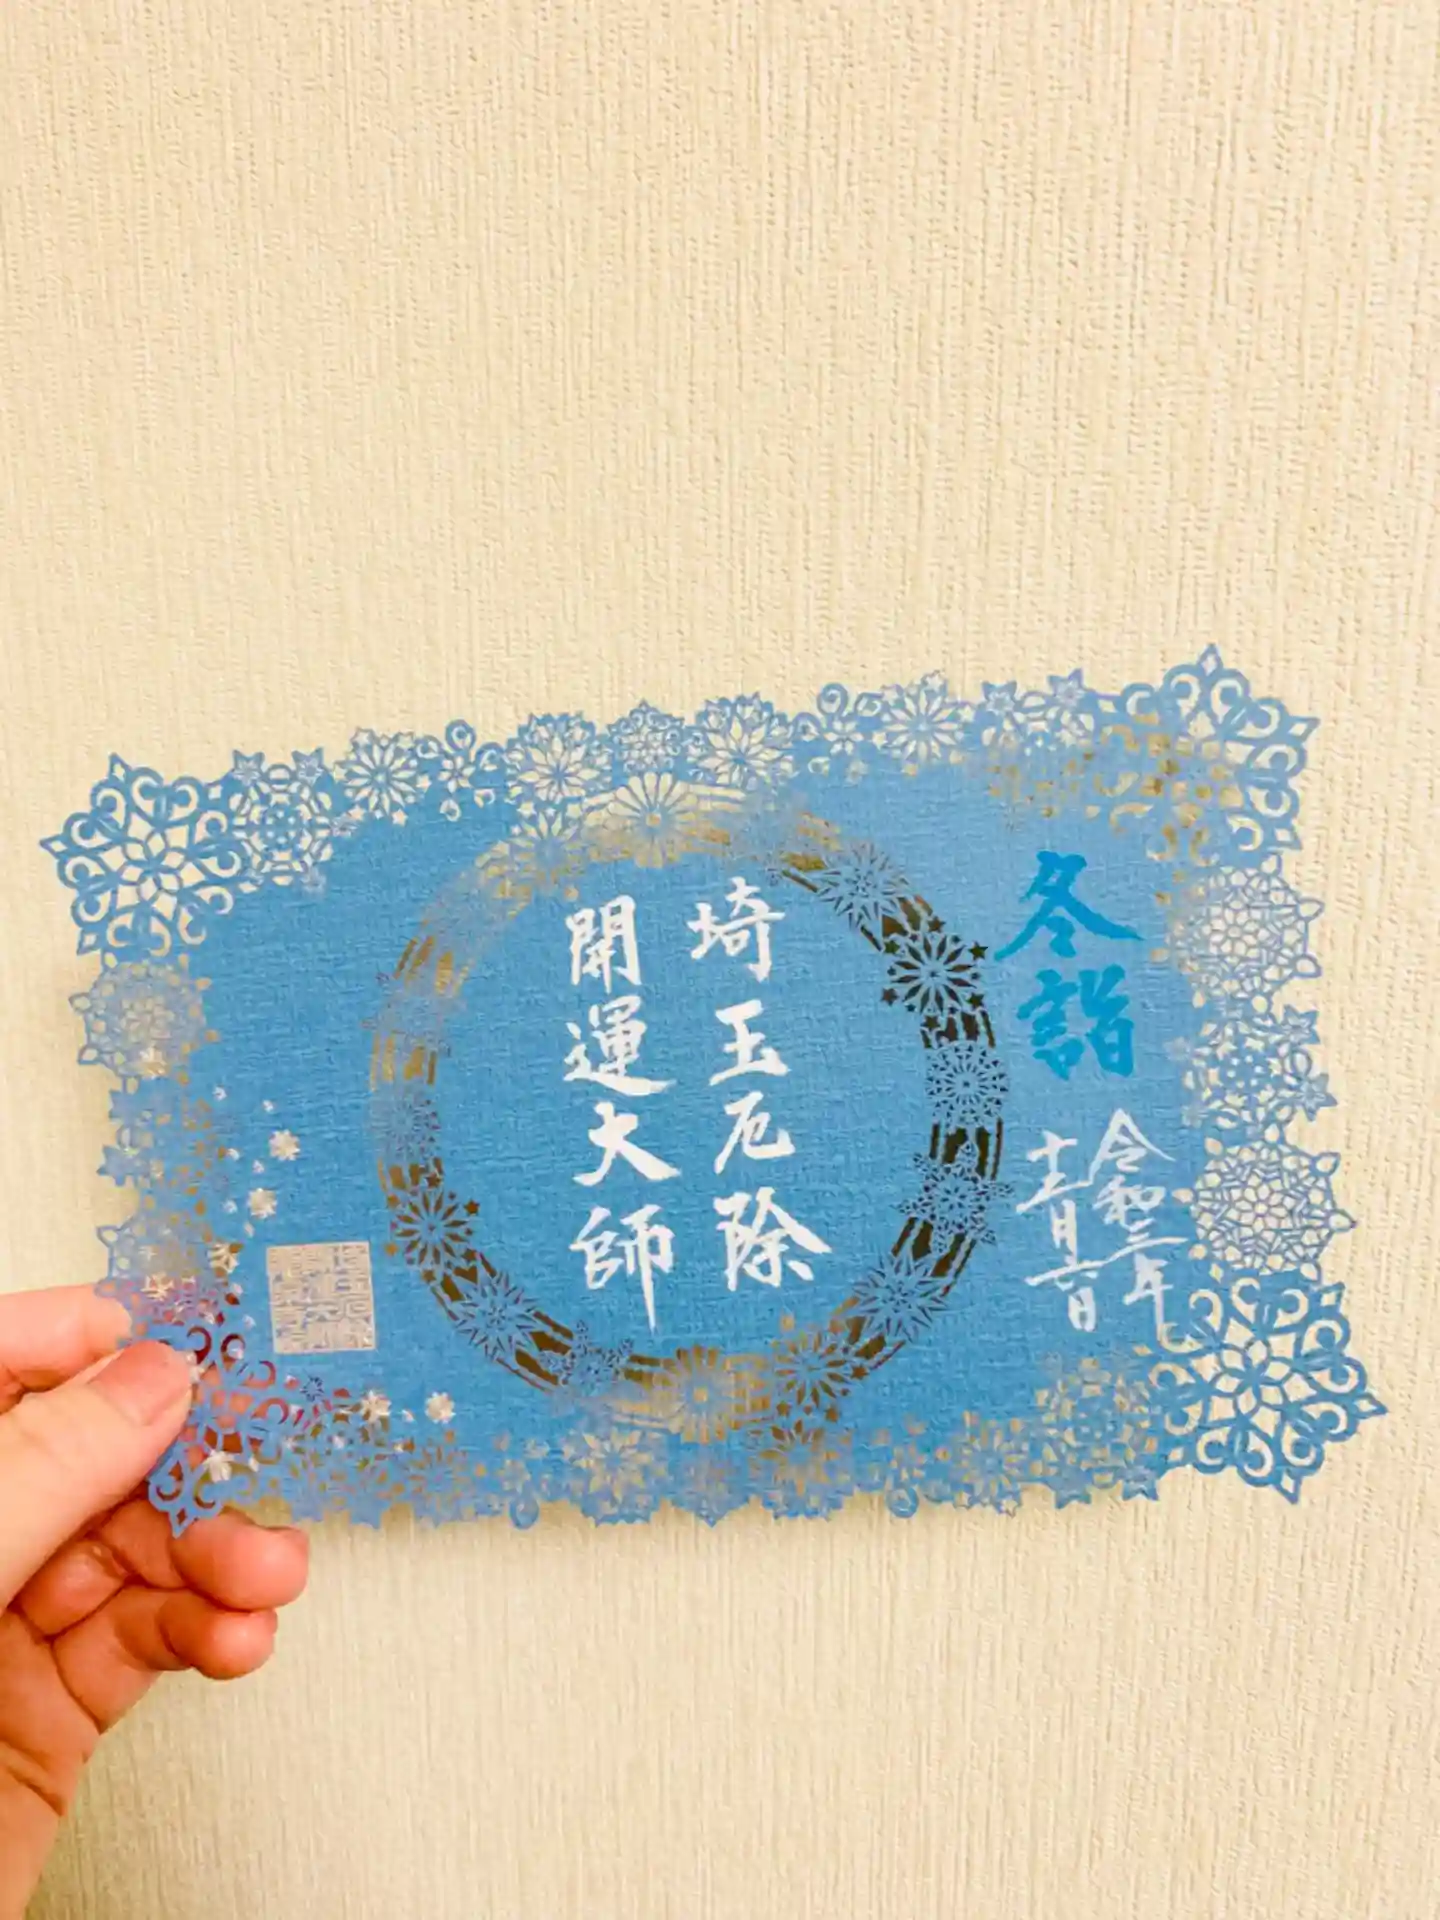 冬詣
令和三年
十二月十六日
埼玉厄除
開運大師